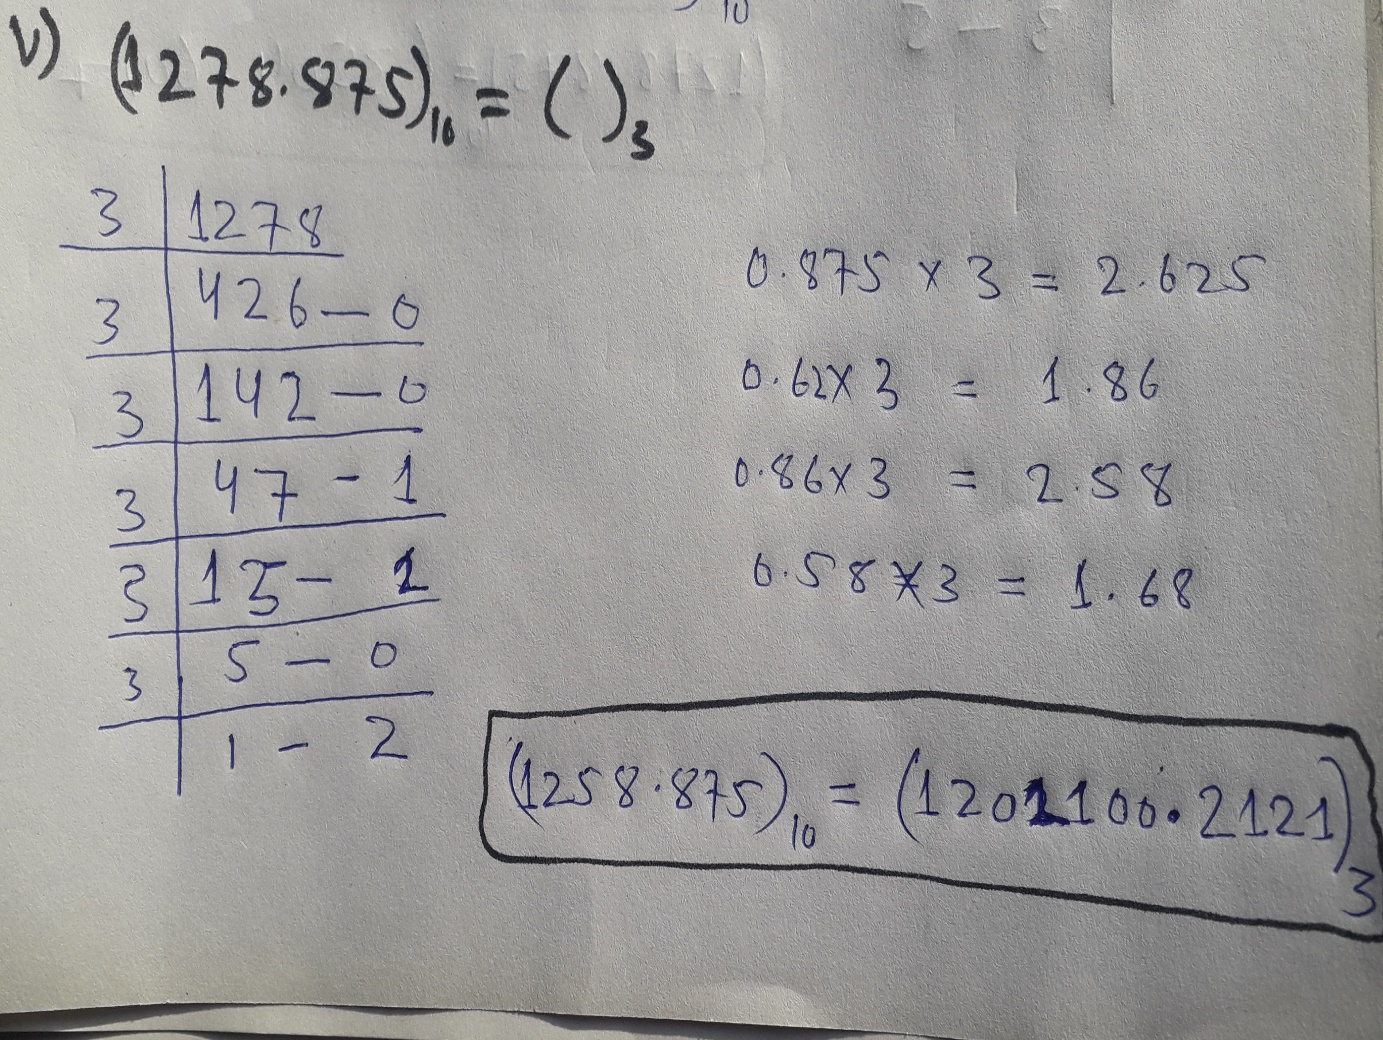 10
v) (1278.875)10 = ( )3
3 | 1278
3 | 426 - 0
3 | 142 - 0
3 | 47 - 1
3 | 15 - 2
3 | 5 - 0
1 - 2
0.875 x 3 = 2.625
0.62x 3 = 1.86
0.86x 3 = 2.58
0.58 x 3 = 1.68
(1258.875)10 = (1202100.2121)3